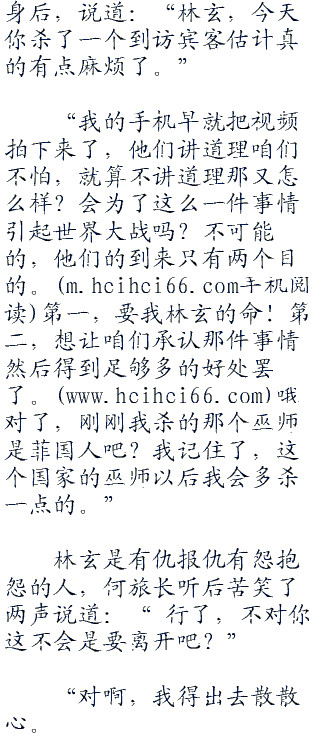 身后，说道：“林玄，今天
你杀了一个到访宾客估计真
的有点麻烦了。”
“我的手机早就把视频
拍下来了，他们讲道理咱们
不怕，就算不讲道理那又怎
么样？会为了这么一件事情
引起世界大战吗？不可能
的，他们的到来只有两个目
的。(m.hcihci66.com手机阅
读)第一，要我林玄的命！第
二，想让咱们承认那件事情
然后得到足够多的好处罢
了。(www.hcihci66.com)哦
对了，刚刚我杀的那个巫师
是菲国人吧？我记住了，这
个国家的巫师以后我会多杀
一点的。”
林玄是有仇报仇有怨抱
怨的人，何旅长听后苦笑了
两声说道：“ 行了，不对你
这不会是要离开吧？”
“对啊，我得出去散散
心。